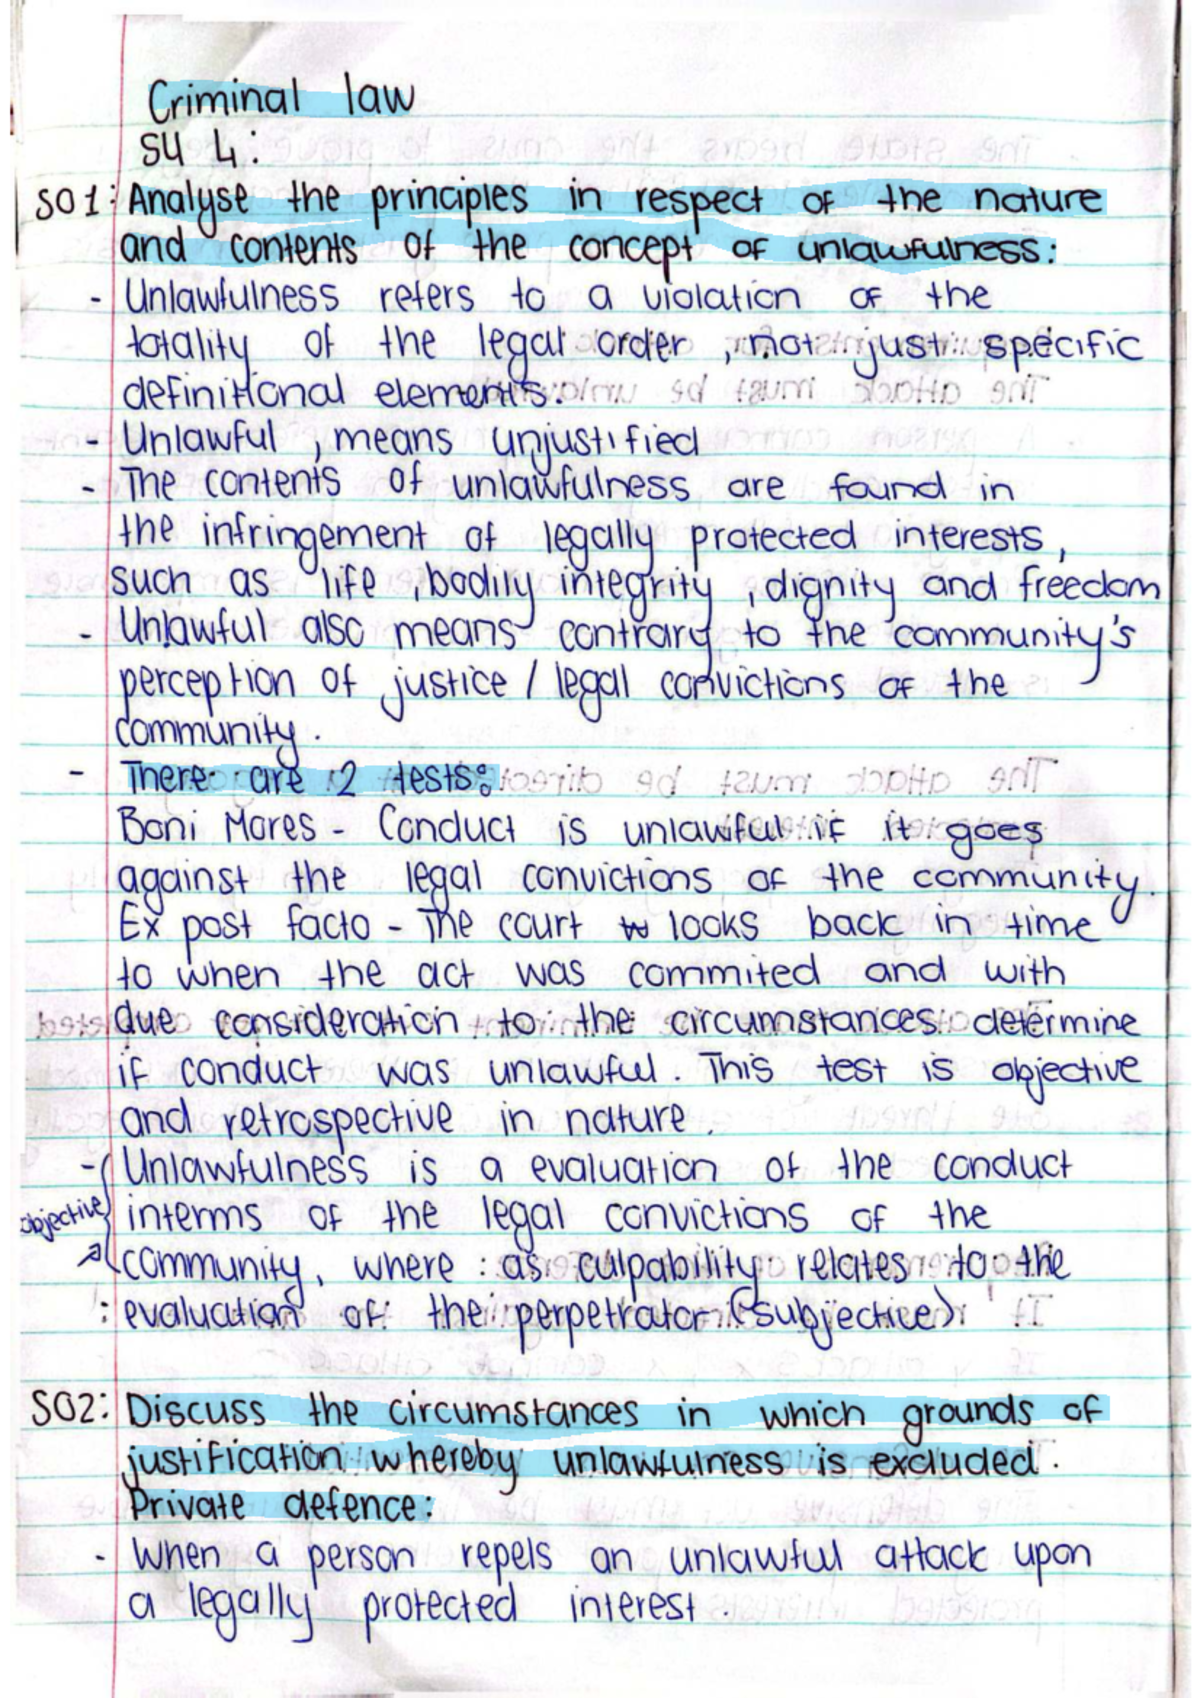 Criminal law
SU 4:
SO1: Analyse the principles in respect of the nature
and contents of the concept of unlawfulness:
- Unlawfulness refers to a violation of the
totality of the legal order, not just specific
definitional elements.
- Unlawful, means unjustified
- The contents of unlawfulness are found in
the infringement of legally protected interests,
such as life, bodily integrity, dignity and freedom
- Unlawful also means contrary to the community's
perception of justice / legal convictions of the
community.
- There are 2 tests:
Boni Mores - Conduct is unlawful if it goes
against the legal convictions of the community.
Ex post facto - The court looks back in time
to when the act was commited and with
due consideration to the circumstances determine
if conduct was unlawful. This test is objective
and retrospective in nature.
- Unlawfulness is a evaluation of the conduct
objective interms of the legal convictions of the
community, where as culpability relates to the
evaluation of the perpetrator (subjective)
SO2: Discuss the circumstances in which grounds of
justification whereby unlawfulness is excluded.
Private defence:
- When a person repels an unlawful attack upon
a legally protected interest.